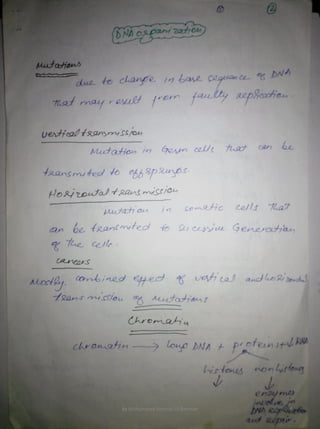 ②
DNA organization
Mutations
due to change in base sequence of DNA
That may result from faulty replication.
vertical transmission
Mutation in Germ cells that can be
transmuted to offsprings.
Horizontal transmission
Mutation in somatic cells That
can be transmuted to successive Generation
of The cells.
cancers
Mostly, combined effect of vertical and horizontal
transmission of mutations
Chromatin
chromatin → long DNA + proteins + ↓ RNA
histones non histones
↓ ↓
enzymes
involve in
DNA replication
and repair.